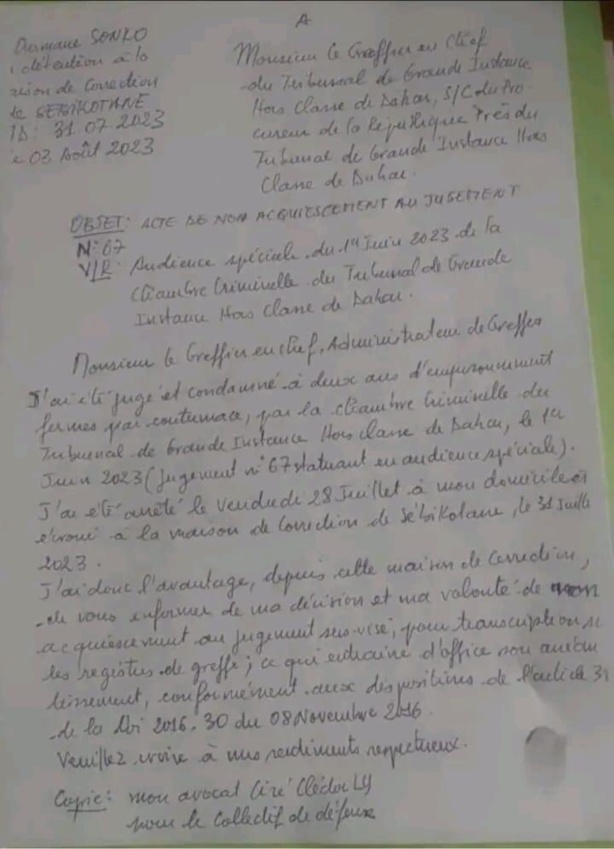 Ousmane SONKO
détention à la
de Correction
de SEBIKOTANE
31.07.2023
03 Août 2023
A
Monsieur le Greffier en Chef
du Tribunal de Grande Instance
Hors Classe de Dakar, S/C du Pro-
cureur de la République Près du
Tribunal de Grande Instance Hors
Classe de Dakar.
OBJET: ACTE DE NON ACQUIESCEMENT AU JUGEMENT
N°67
V/R: Audience spéciale du 1er Juin 2023 de la
Chambre Criminelle du Tribunal de Grande
Instance Hors Classe de Dakar.
Monsieur le Greffier en chef, Administrateur de Greffes
J'ai été jugé et condamné à deux ans d'emprisonnement
fermes par contumace, par la Chambre Criminelle du
Tribunal de Grande Instance Hors classe de Dakar, le 1er
Juin 2023 (Jugement n°67 statuant en audience spéciale).
J'ai été arrêté le Vendredi 28 Juillet à mon domicile et
écroué à la maison de Correction de Sébikotane, le 31 Juillet
2023.
J'ai donc l'avantage, depuis cette maison de Correction,
de vous informer de ma décision et ma volonté de non
acquiescement au jugement sus-visé, pour transcription sur
les registres de greffe; ce qui entraine d'office son anéan
tissement, conformément aux dispositions de l'article 31
de la Loi 2016.30 du 08 Novembre 2016.
Veuillez croire à mes sentiments respectueux.
Copie: mon avocat Ciré Clédor LY
pour le Collectif de défense